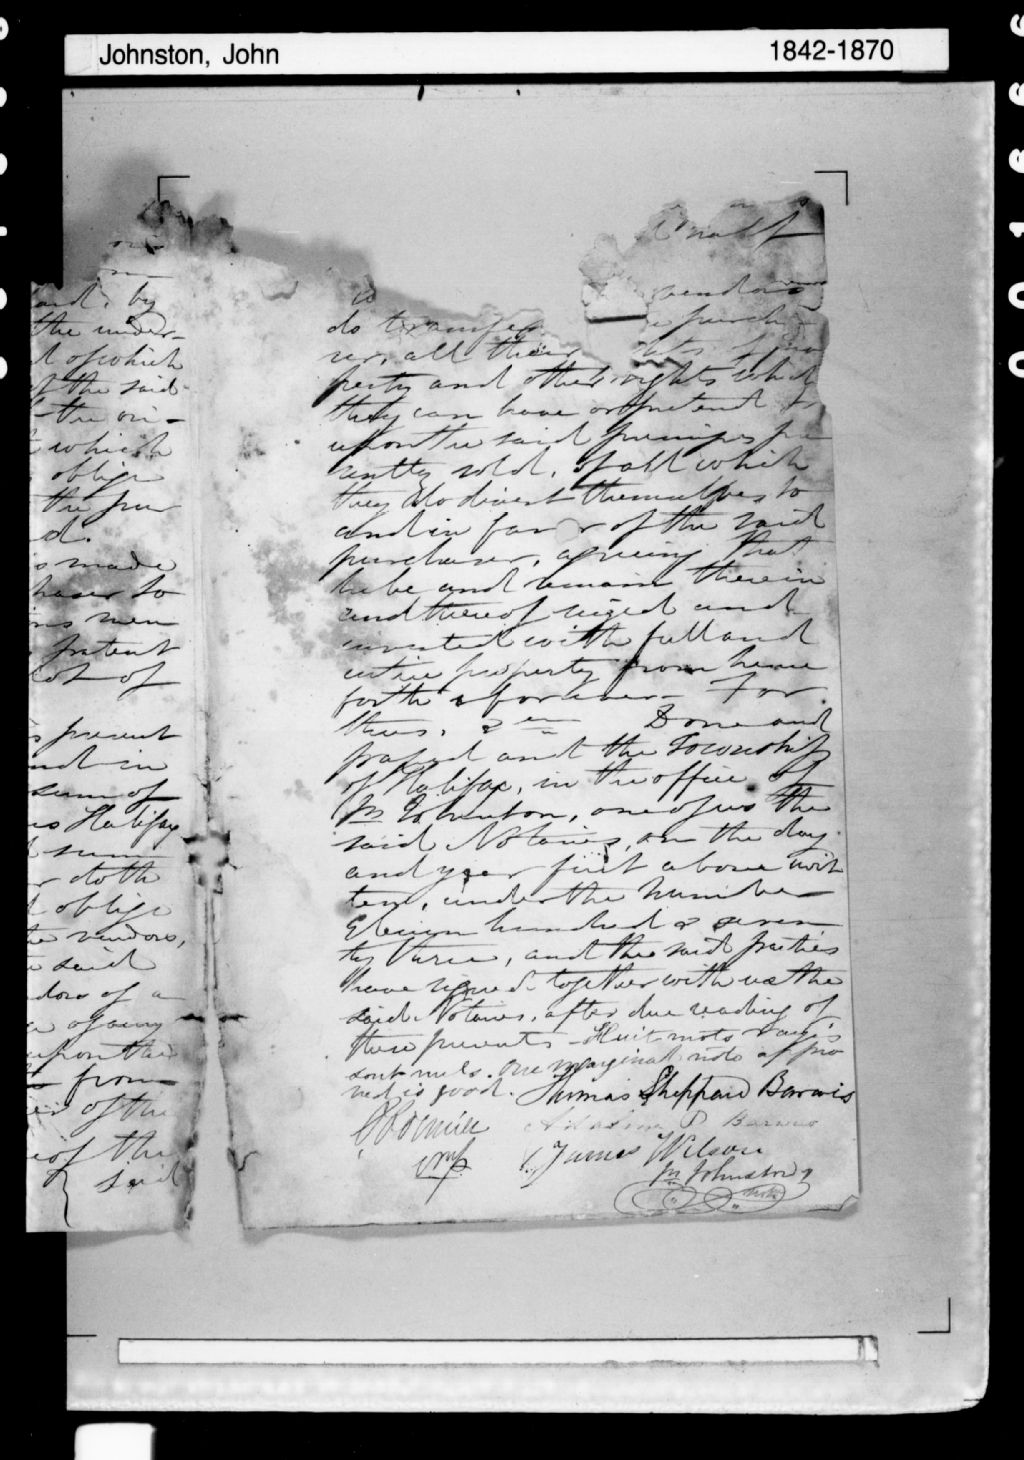 Johnston, John 1842-1870
and by
the under-
d of which
of the said
the ori-
t which
oblige
the pur
d.
s made
haser to
ns men
patent
lot of
s present
nd in
sum of
us Halifax
d sum
r doth
d oblige
the vendors,
e said
dors of a
upon the
from
ies of the
e of the
said
half
do transfer purch-
ser, all their rights of pro
perty and other rights which
they can have or pretend to
upon the said premises pre
sently sold, of all which
they do divest themselves to
and in favor of the said
purchaser, agreeing that
he be and remain therein
and thereof seized and
invested with full and
entire property from hence
forth & forever - For
thus, &
Done and
passed and the Township
of Halifax, in the office of
Jn Johnston, one of us the
said Notaries, on the day
and year first above writ
ten, under the number
Eleven hundred & seven
ty three, and the said parties
have signed together with us the
said Notaries, after due reading of
these presents - Huit mots rayés
sont nuls. One marginal note appro
ved is good. Thomas Sheppard Barwis
P Barwis
James Wilson
Jn Johnston
Not